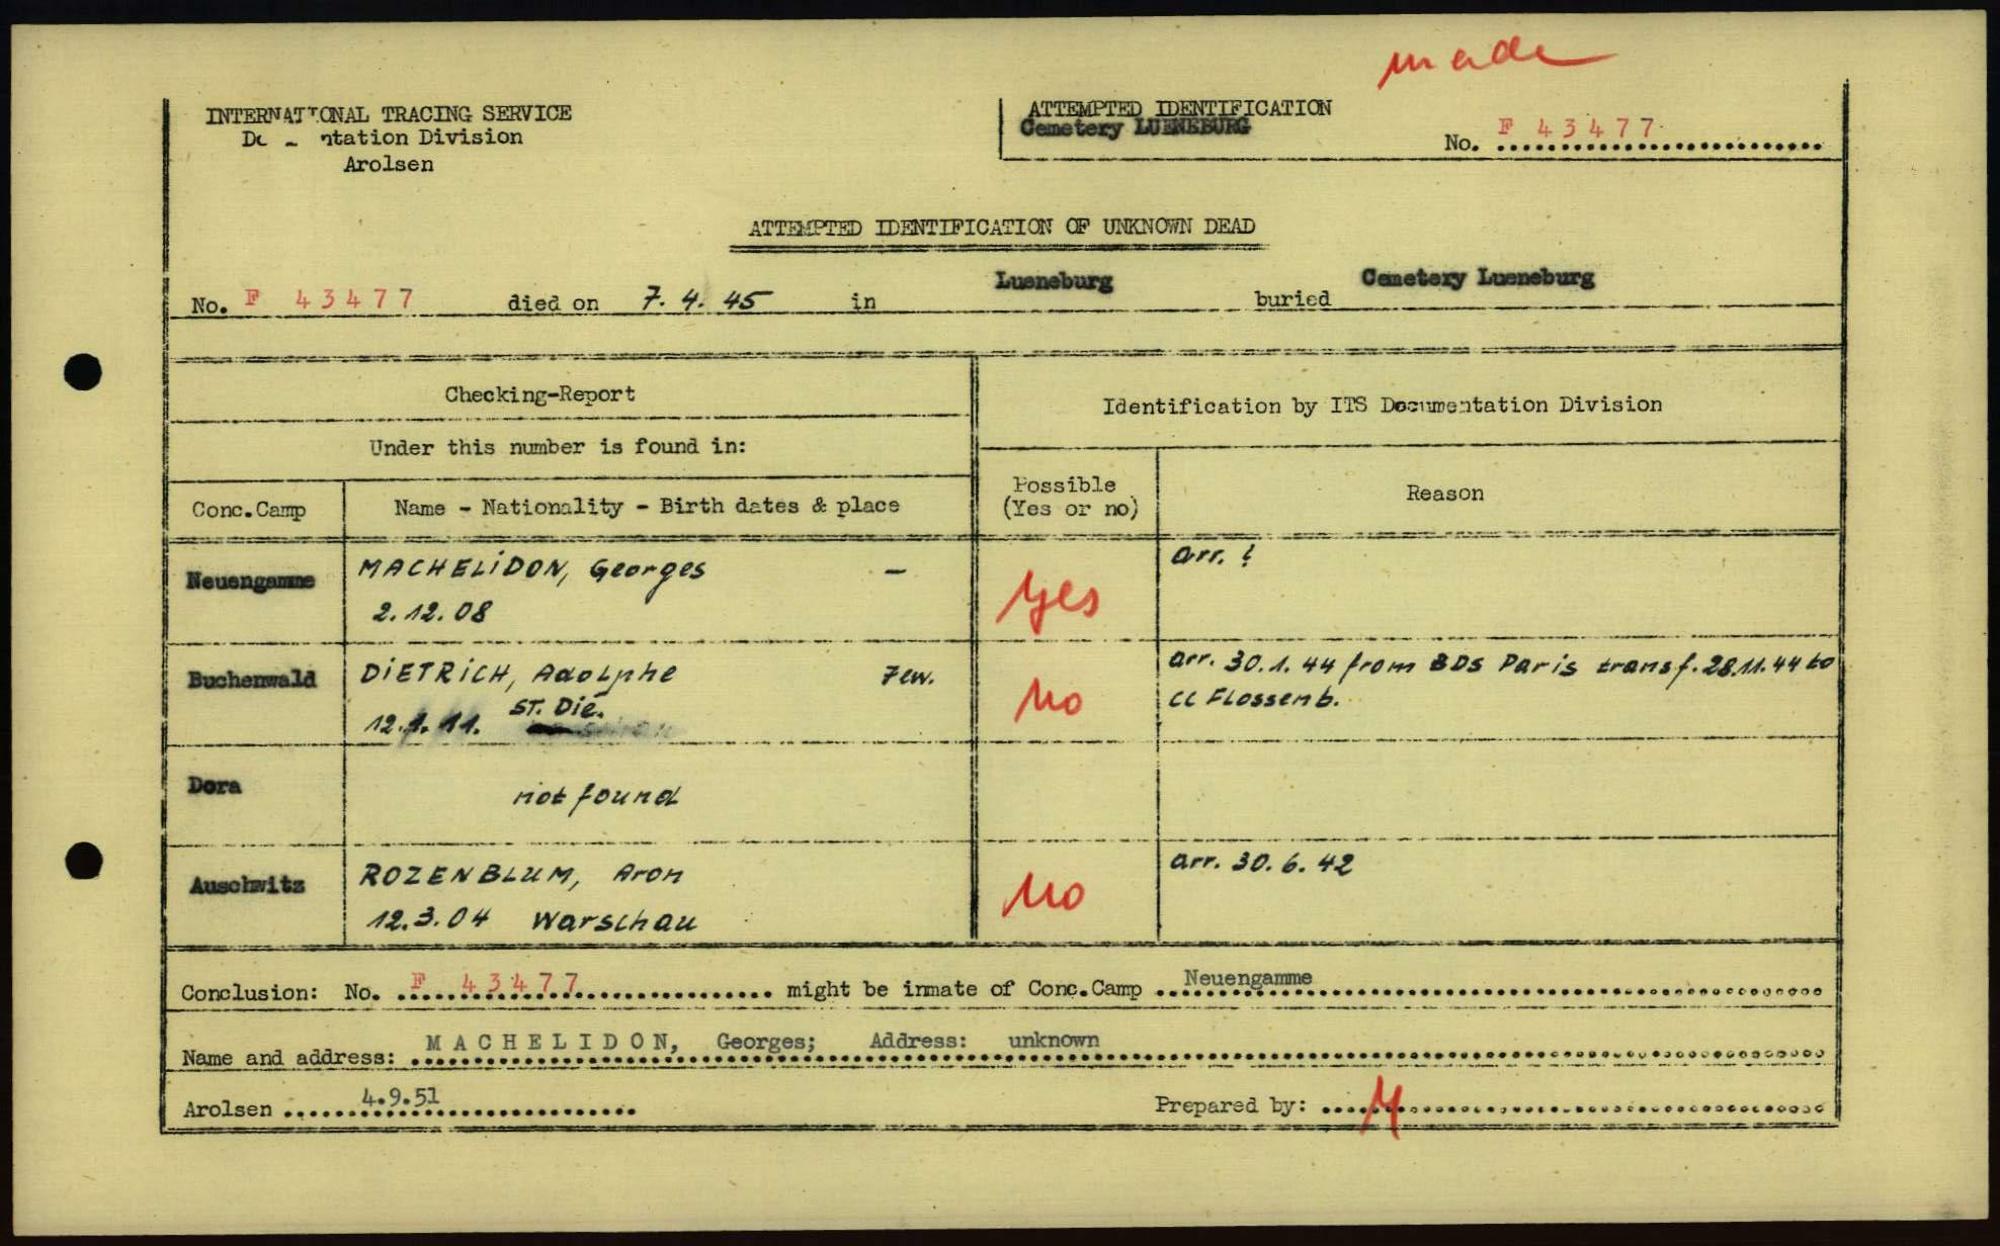 made
INTERNATIONAL TRACING SERVICE
ntation Division
Arolsen
ATTEMPTED IDENTIFICATION
Cemetery LUENEBURG
No. F 43477
ATTEMPTED IDENTIFICATION OF UNKNOWN DEAD
No. F 43477 died on 7.4.45 in Lueneburg buried Cemetery Lueneburg
Checking-Report
Identification by ITS Documentation Division
Under this number is found in:
Conc.Camp
Name - Nationality - Birth dates & place
Possible
(Yes or no)
Reason
Neuengamme
MACHELIDON, Georges -
2.12.08
yes
arr. ?
Buchenwald
DIETRICH, Adolphe Jew.
12.1.11. ST. Dié.
no
arr. 30.1.44 from BDS Paris transf. 28.11.44 to
CC Flossenb.
Dora
not found
Auschwitz
ROZENBLUM, Aron
12.3.04 Warschau
no
arr. 30.6.42
Conclusion: No. F 43477 might be inmate of Conc.Camp Neuengamme
Name and address: MACHELIDON, Georges; Address: unknown
Arolsen 4.9.51
Prepared by: